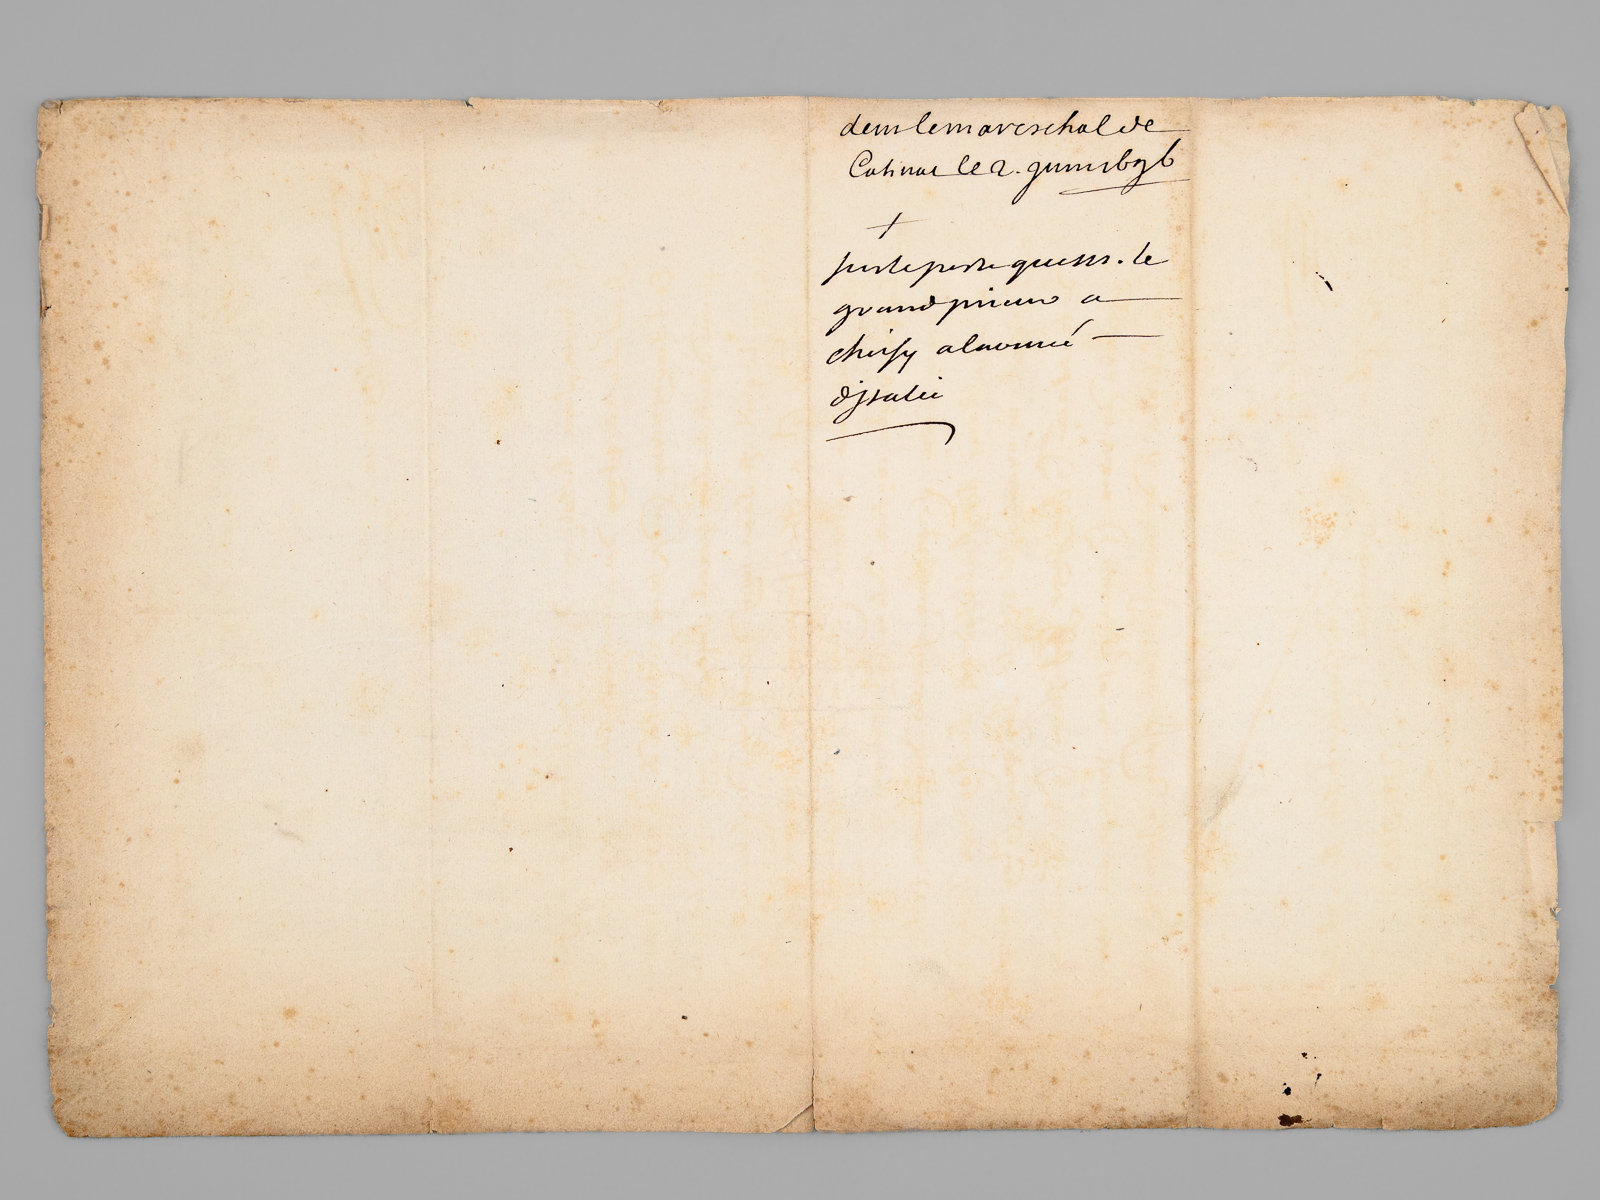 de m le mareschal de
Catinat le 2. juin 1696
+
sur le poste que mr. le
grand prieur a
choisy a l'armée
d'jtalie